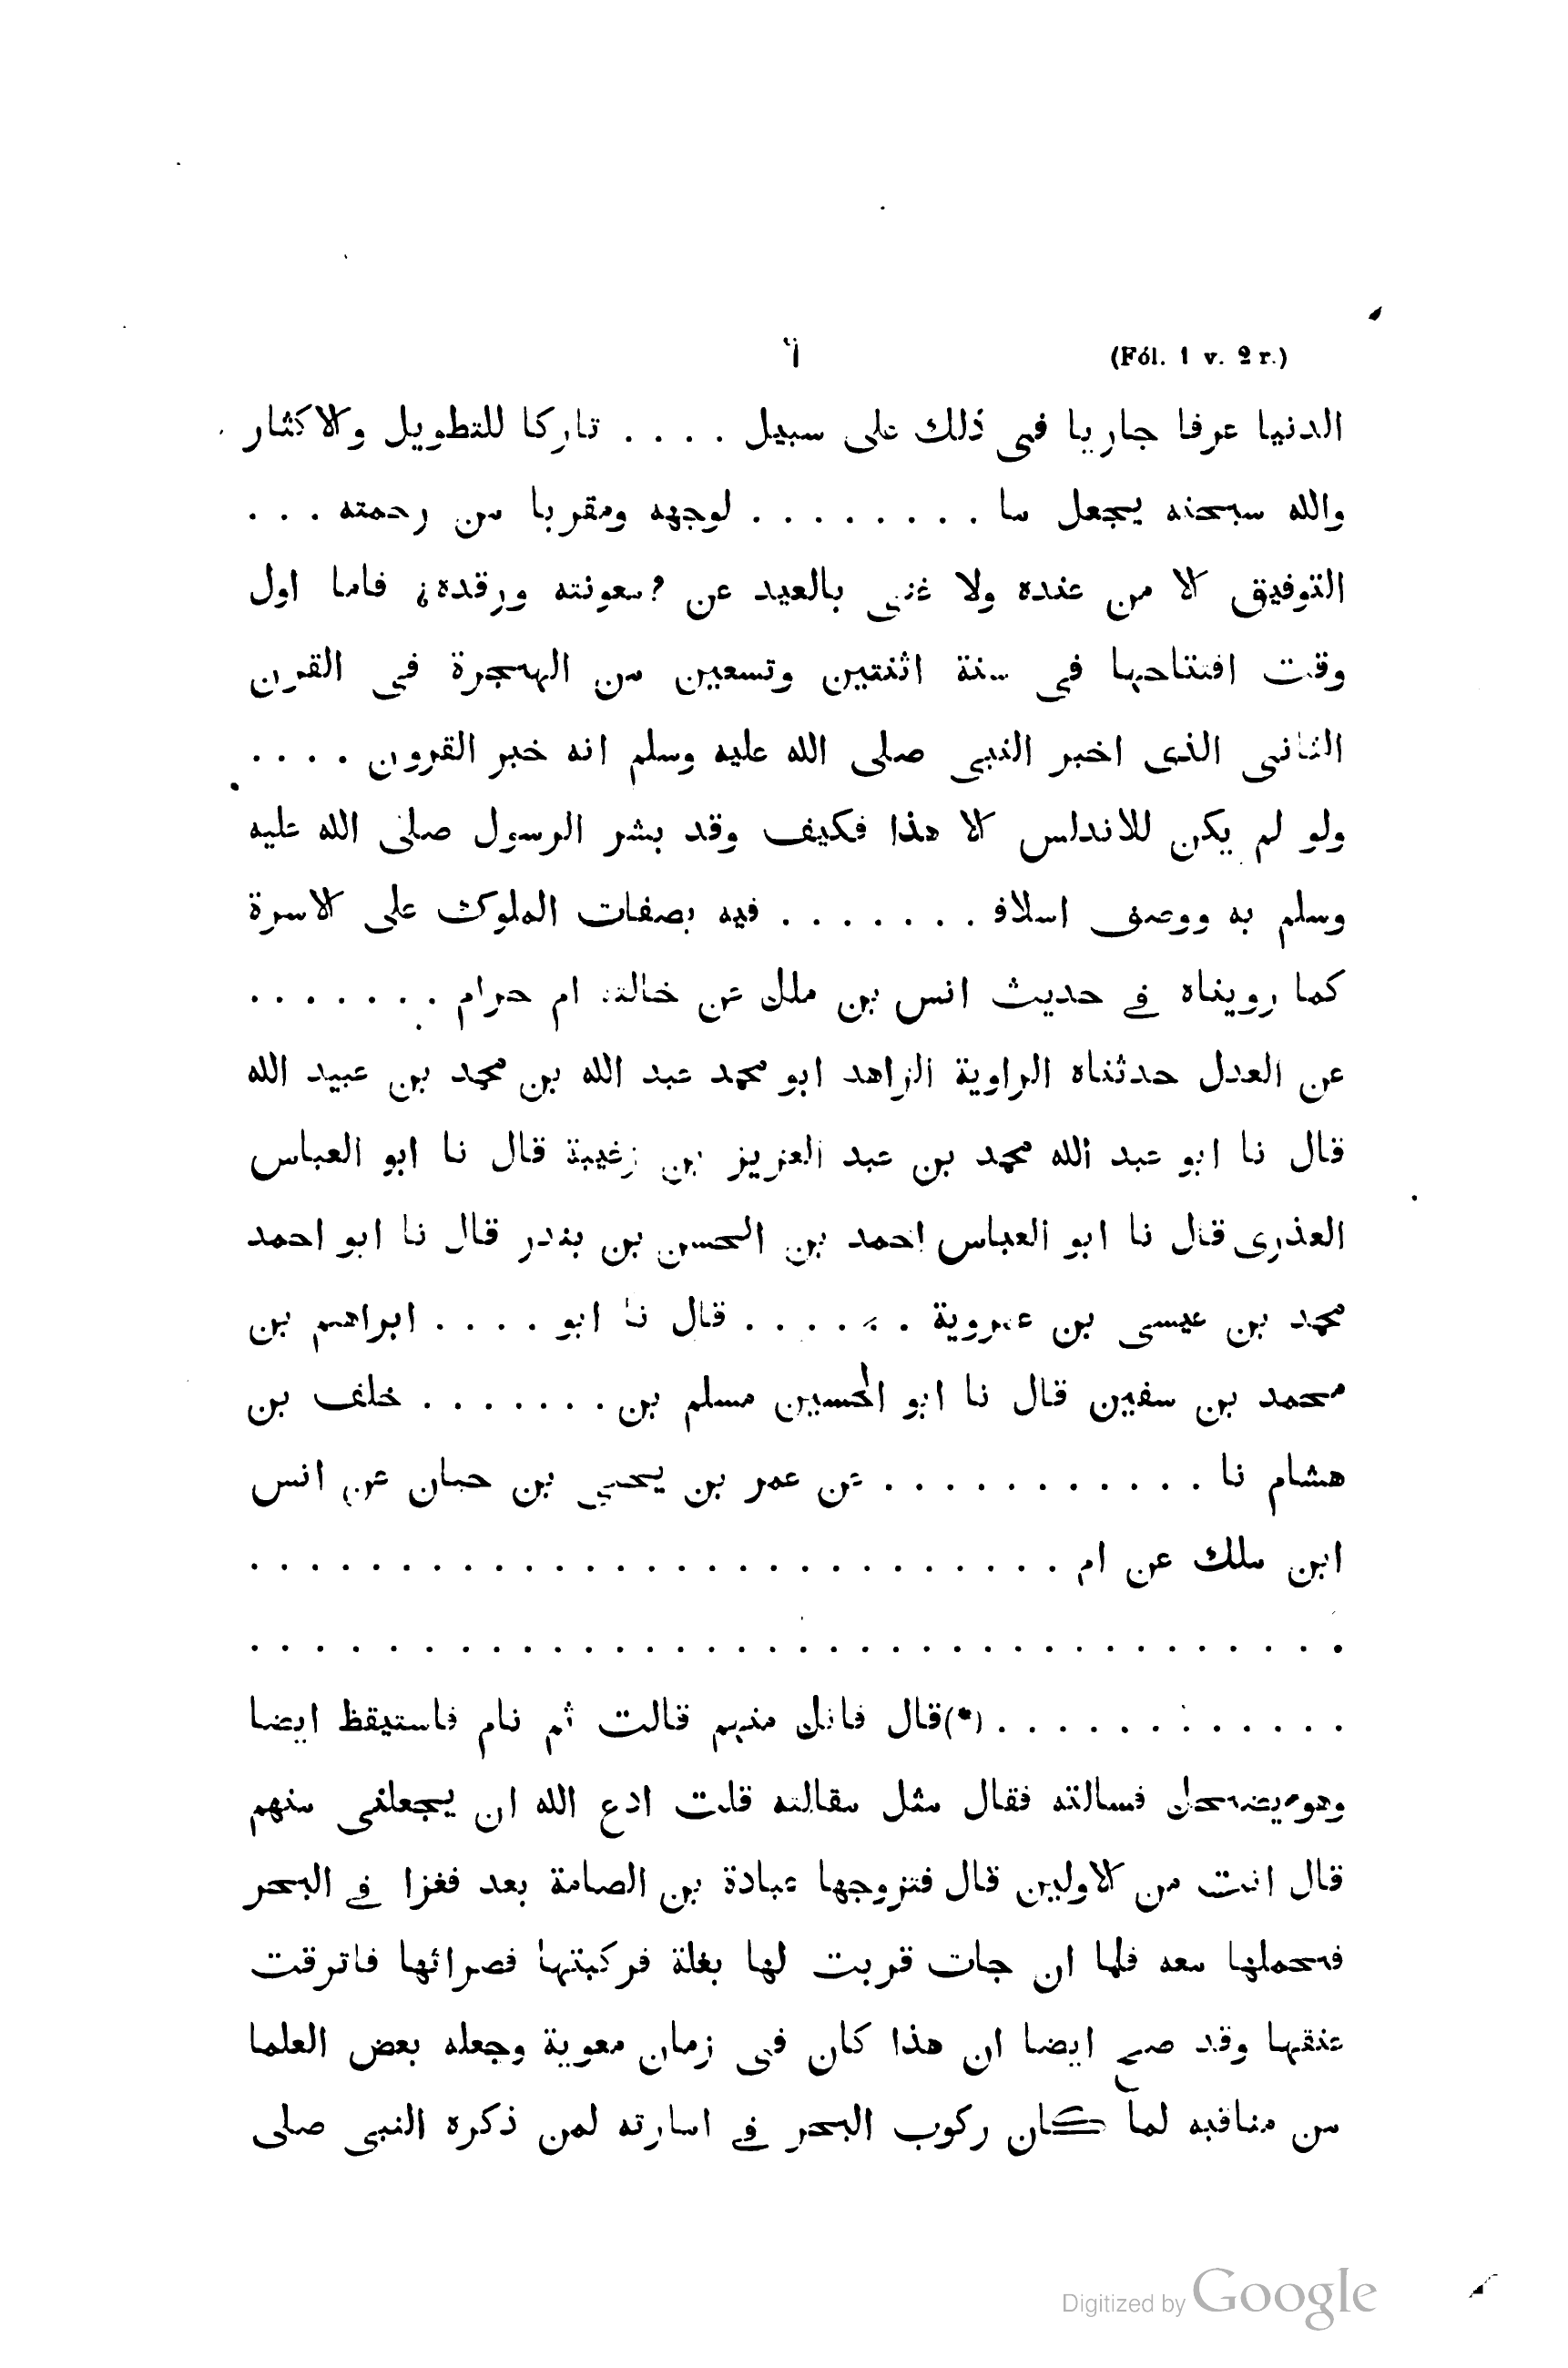 (Fól. 1 v. 2 r.)
الدنيا عرفا جاريا فى ذلك على سبيل . . . . تاركا للتطويل والاكثار
والله سبحنه يجعل ما . . . . . . . . لوجهه ومقربا من رحمته . . .
التوفيق الا من عنده ولا غنى بالعيد عن ?معونته ورقدة¿ فاما اول
وقت افتتاحها فى سنة اثنتين وتسعين من الهجرة فى القرن
الثانى الذى اخبر النبى صلى الله عليه وسلم انه خبر القرون . . . .
ولو لم يكن للاندلس الا هذا فكيف وقد بشر الرسول صلى الله عليه
وسلم به ووصف اسلاف . . . . . . . فيه بصفات الملوك على الاسرة
كما رويناه في حديث انس بن ملك عن خالته ام حرام . . . . . . .
عن العدل حدثناه الراوية الزاهد ابو محمد عبد الله بن محمد بن عبيد الله
قال نا ابو عبد الله محمد بن عبد العزيز بن زغيبة قال نا ابو العباس
العذرى قال نا ابو العباس احمد بن الحسن بن بندر قال نا ابو احمد
محمد بن عيسى بن عمروية . . . . . . قال نا ابو . . . . ابراهيم بن
محمد بن سفين قال نا ابو الحسين مسلم بن . . . . . . . خلف بن
هشام نا . . . . . . . . . . . عن عمر بن يحيى بن حبان عن انس
ابن ملك عن ام . . . . . . . . . . . . . . . . . . . . . . . . . .
. . . . . . . . . . . . . . . . . . . . . . . . . . . . . . . . .
. . . . . . . . . . . . (*)قال فانك منهم قالت ثم نام فاستيقظ ايضا
وهو يضحك فسالته فقال مثل مقالته قلت ادع الله ان يجعلنى منهم
قال انت من الاولين قال فتزوجها عبادة بن الصامة بعد فغزا في البحر
فحملها معه فلما ان جات قربت لها بغلة فركبتها فصرائها فاترقت
عنقها وقد صح ايضا ان هذا كان فى زمان معوية وجعله بعض العلما
من مناقبه لما كان ركوب البحر في امارته لمن ذكره النبى صلى
Digitized by Google